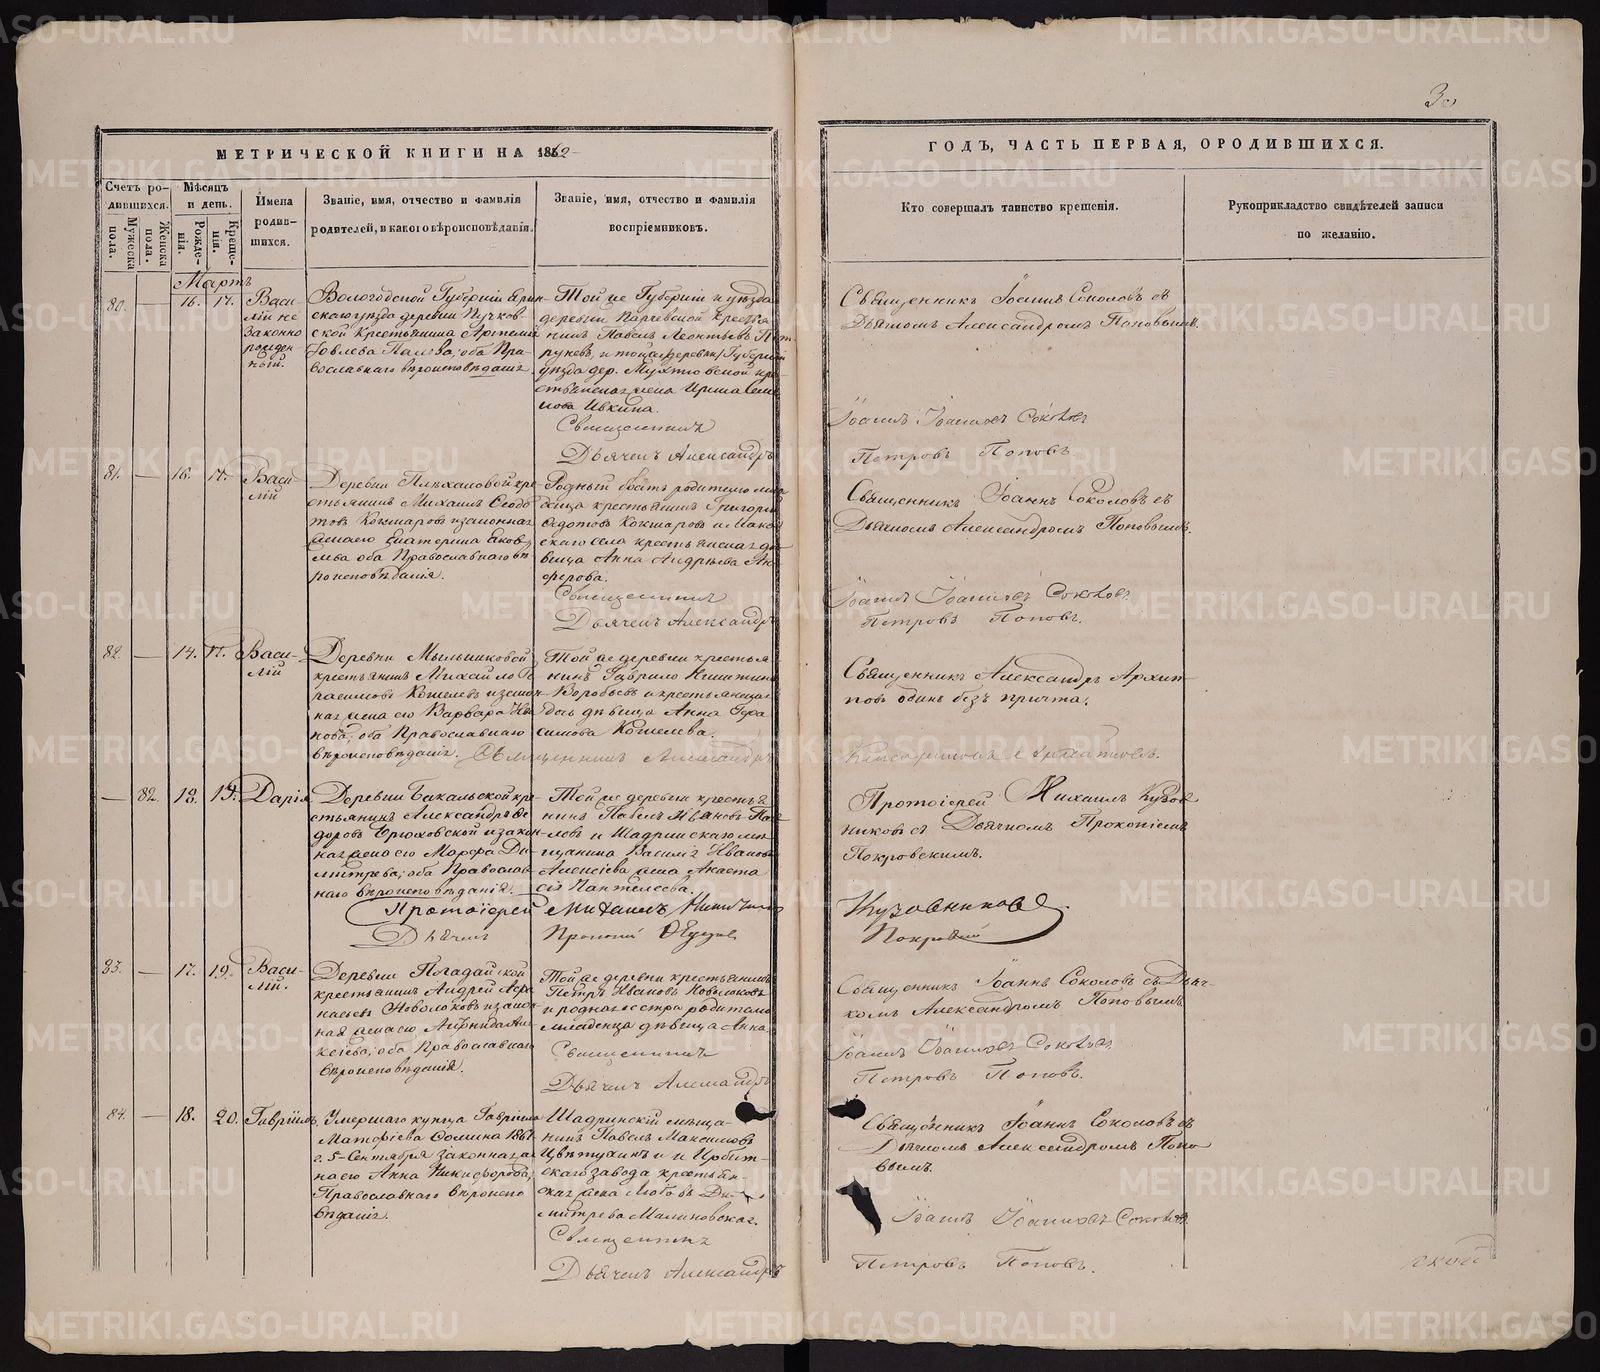 30
МЕТРИЧЕСКОЙ КНИГИ НА 1862
ГОДЪ, ЧАСТЬ ПЕРВАЯ, О РОДИВШИХСЯ.
Счетъ ро-
дившихся.
Мужеска
пола.
Женска
пола.
Мѣсяцъ
и день.
Рожде-
нія.
Креще-
нія.
Имена
родив-
шихся.
Званіе, имя, отчество и фамилія
родителей, и какого вѣроисповѣданія.
Званіе, имя, отчество и фамилія
воспріемниковъ.
Кто совершалъ таинство крещенія.
Рукоприкладство свидѣтелей записи
по желанію.
Мартъ
80. — 16. 17.
Васи-
лій не
законно
рожден-
ный.
Вологодской Губерніи
ской Крестьянина
вославнаго вѣроисповѣданія
Той же Губерніи и уѣзда
нинъ Павелъ Леонтьевъ
нова Ивкина.
Священникъ
Дьячекъ Александръ
Священникъ Іоаннъ Соколовъ съ
Дьячкомъ Александромъ Поповымъ.
Іоаннъ Іоанновъ Соколовъ
Петровъ Поповъ
81. — 16. 17.
Васи-
лій
стьянинъ Михаилъ Ѳедо
товъ Кокшаровъ и законная
жена его Екатерина Яков-
лева оба Православнаго вѣ
роисповѣданія.
Родный братъ родителю мла
денца крестьянинъ Григорій
Ѳедотовъ Кокшаровъ и
скаго села крестьянская дѣ
вица Анна Андрѣева Ан
ферова.
Священникъ
Дьячекъ Александръ
Священникъ Іоаннъ Соколовъ съ
Дьячкомъ Александромъ Поповымъ.
Іоаннъ Іоанновъ Соколовъ
Петровъ Поповъ.
82. — 14. 17.
Васи-
лій
Деревни Мыльниковой
крестьянинъ Михайло Ге
расимовъ Кошелевъ и закон
ная жена его Варвара Ива
нова, оба Православнаго
вѣроисповѣданія.
Той же деревни крестья
нинъ Гаврило Никитинъ
Воробьевъ и крестьянская
дочь дѣвица Анна Гера
симова Кошелева.
Священникъ Александръ
Священникъ Александръ Архип-
повъ одинъ безъ причта.
— 82. 18. 19. Дарія
Деревни Бакальской кре-
стьянинъ Александръ Ѳе
доровъ Брюховской и закон
ная жена его Марѳа Ди-
митріева, оба Православ
наго вѣроисповѣданія.
Той же деревни крестья
нинъ Павелъ Ивановъ
ловъ и Шадринскаго мѣ-
щанина Василія Иванова
Алексіева жена Анаста
сія Пантелеева.
Протоіерей Михаилъ
Дьячекъ Прокопій
Протоіерей Михаилъ Кузов
никовъ съ Дьячкомъ Прокопіемъ
Покровскимъ.
Кузовниковъ
Покровскій
83. — 17. 19.
Васи-
лій.
Деревни Погадайской
крестьянинъ Андрей Аѳа
насьевъ Новолоковъ и закон
ная жена его
ксіева, оба Православнаго
вѣроисповѣданія.
Той же деревни крестьянинъ
Петръ Ивановъ Новолоковъ
и родная сестра родителю
младенца дѣвица Анна.
Священникъ
Дьячекъ Александръ
Священникъ Іоаннъ Соколовъ съ Дьяч-
комъ Александромъ Поповымъ
Іоаннъ Іоанновъ Соколовъ
Петровъ Поповъ.
84. — 18. 20. Гавріилъ.
Умершаго купца Гавріила
Матѳіева Ѳомина 1861
г. 5 Сентября законная же
на его Анна Никифорова,
Православнаго вѣроиспо
вѣданія.
Шадринскій мѣща-
нинъ Павелъ Максимовъ
Цвѣтухинъ и Ирбит-
скаго завода крестьян-
ская жена Любовь Ди-
митріева Малиновская.
Священникъ
Дьячекъ Александръ
Священникъ Іоаннъ Соколовъ съ
Дьячкомъ Александромъ Попо
вымъ.
Іоаннъ Іоанновъ Соколовъ
Петровъ Поповъ.
METRIKI.GASO-URAL.RU